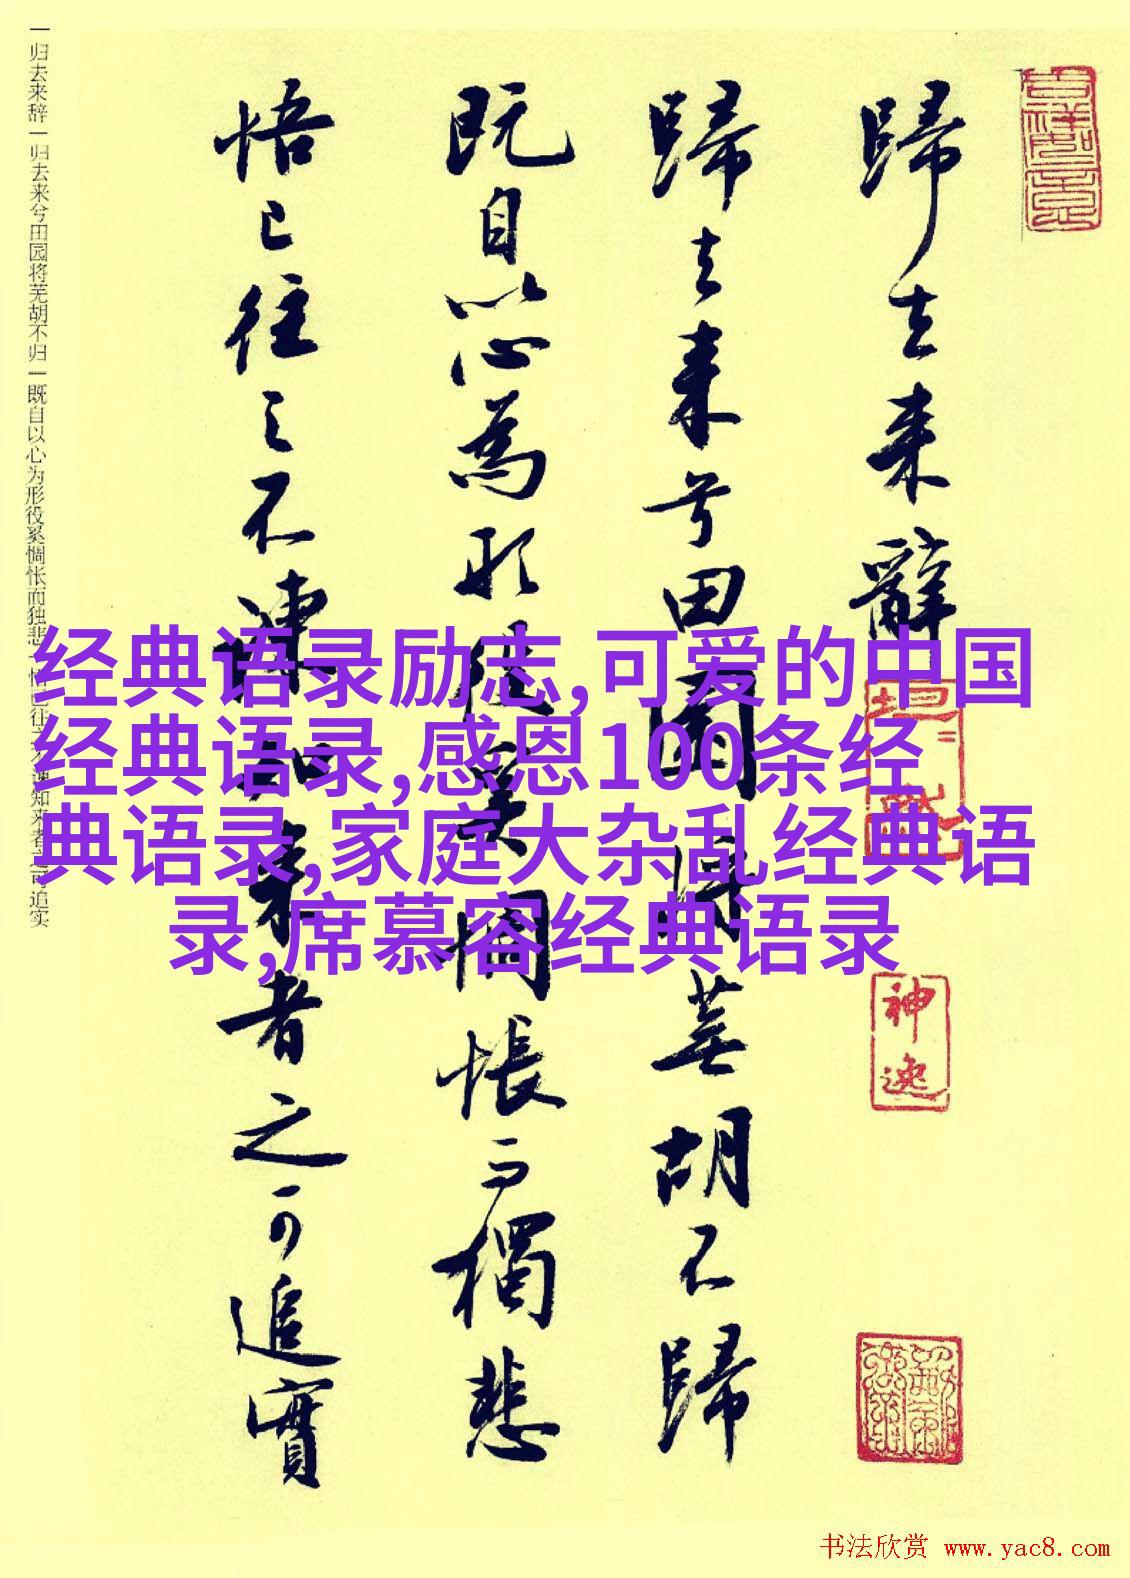 歸去来辭
歸去来兮田園将蕪胡不歸
既自以心為形役奚惆悵而獨悲
悟已往之不諫知来者之可追實
神逸
一归去来辞一归去来兮田园将芜胡不归一既自以心为形役奚惆怅而独悲一悟已往之不谏知来者之可追实
经典语录励志,可爱的中国
经典语录,感恩100条经
典语录,家庭大杂乱经典语
录,席慕容经典语录
书法欣赏 www.yac8.com